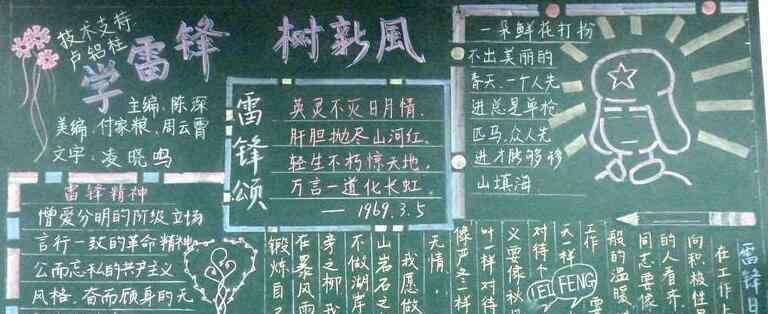 技术支持
卢铝柱
学雷锋 树新風
主编：陈深
美编：付家粮、周云霄
文字：凌晓鸣
雷锋颂
英灵不灭日月情，
肝胆抛尽山河红。
轻生不朽惊天地，
万言一道化长虹。
——1969.3.5
一朵鲜花打扮
不出美丽的
春天，一个人先
进总是单枪
匹马，众人先
进才能够移
山填海
雷锋精神
憎爱分明的阶级立场
言行一致的革命精神
公而忘私的共产主义
风格，奋而顾身的无
雷锋日
在工作上
向积极性最
的人看齐，
同志要像
般的温暖
工作
天一样
对待个
义要像秋
叶一样对待
像严冬一样
无情，
我愿做
山岩石之
不做湖岸
旁之柳，我
在暴风雨
锻炼自己
LEI FENG